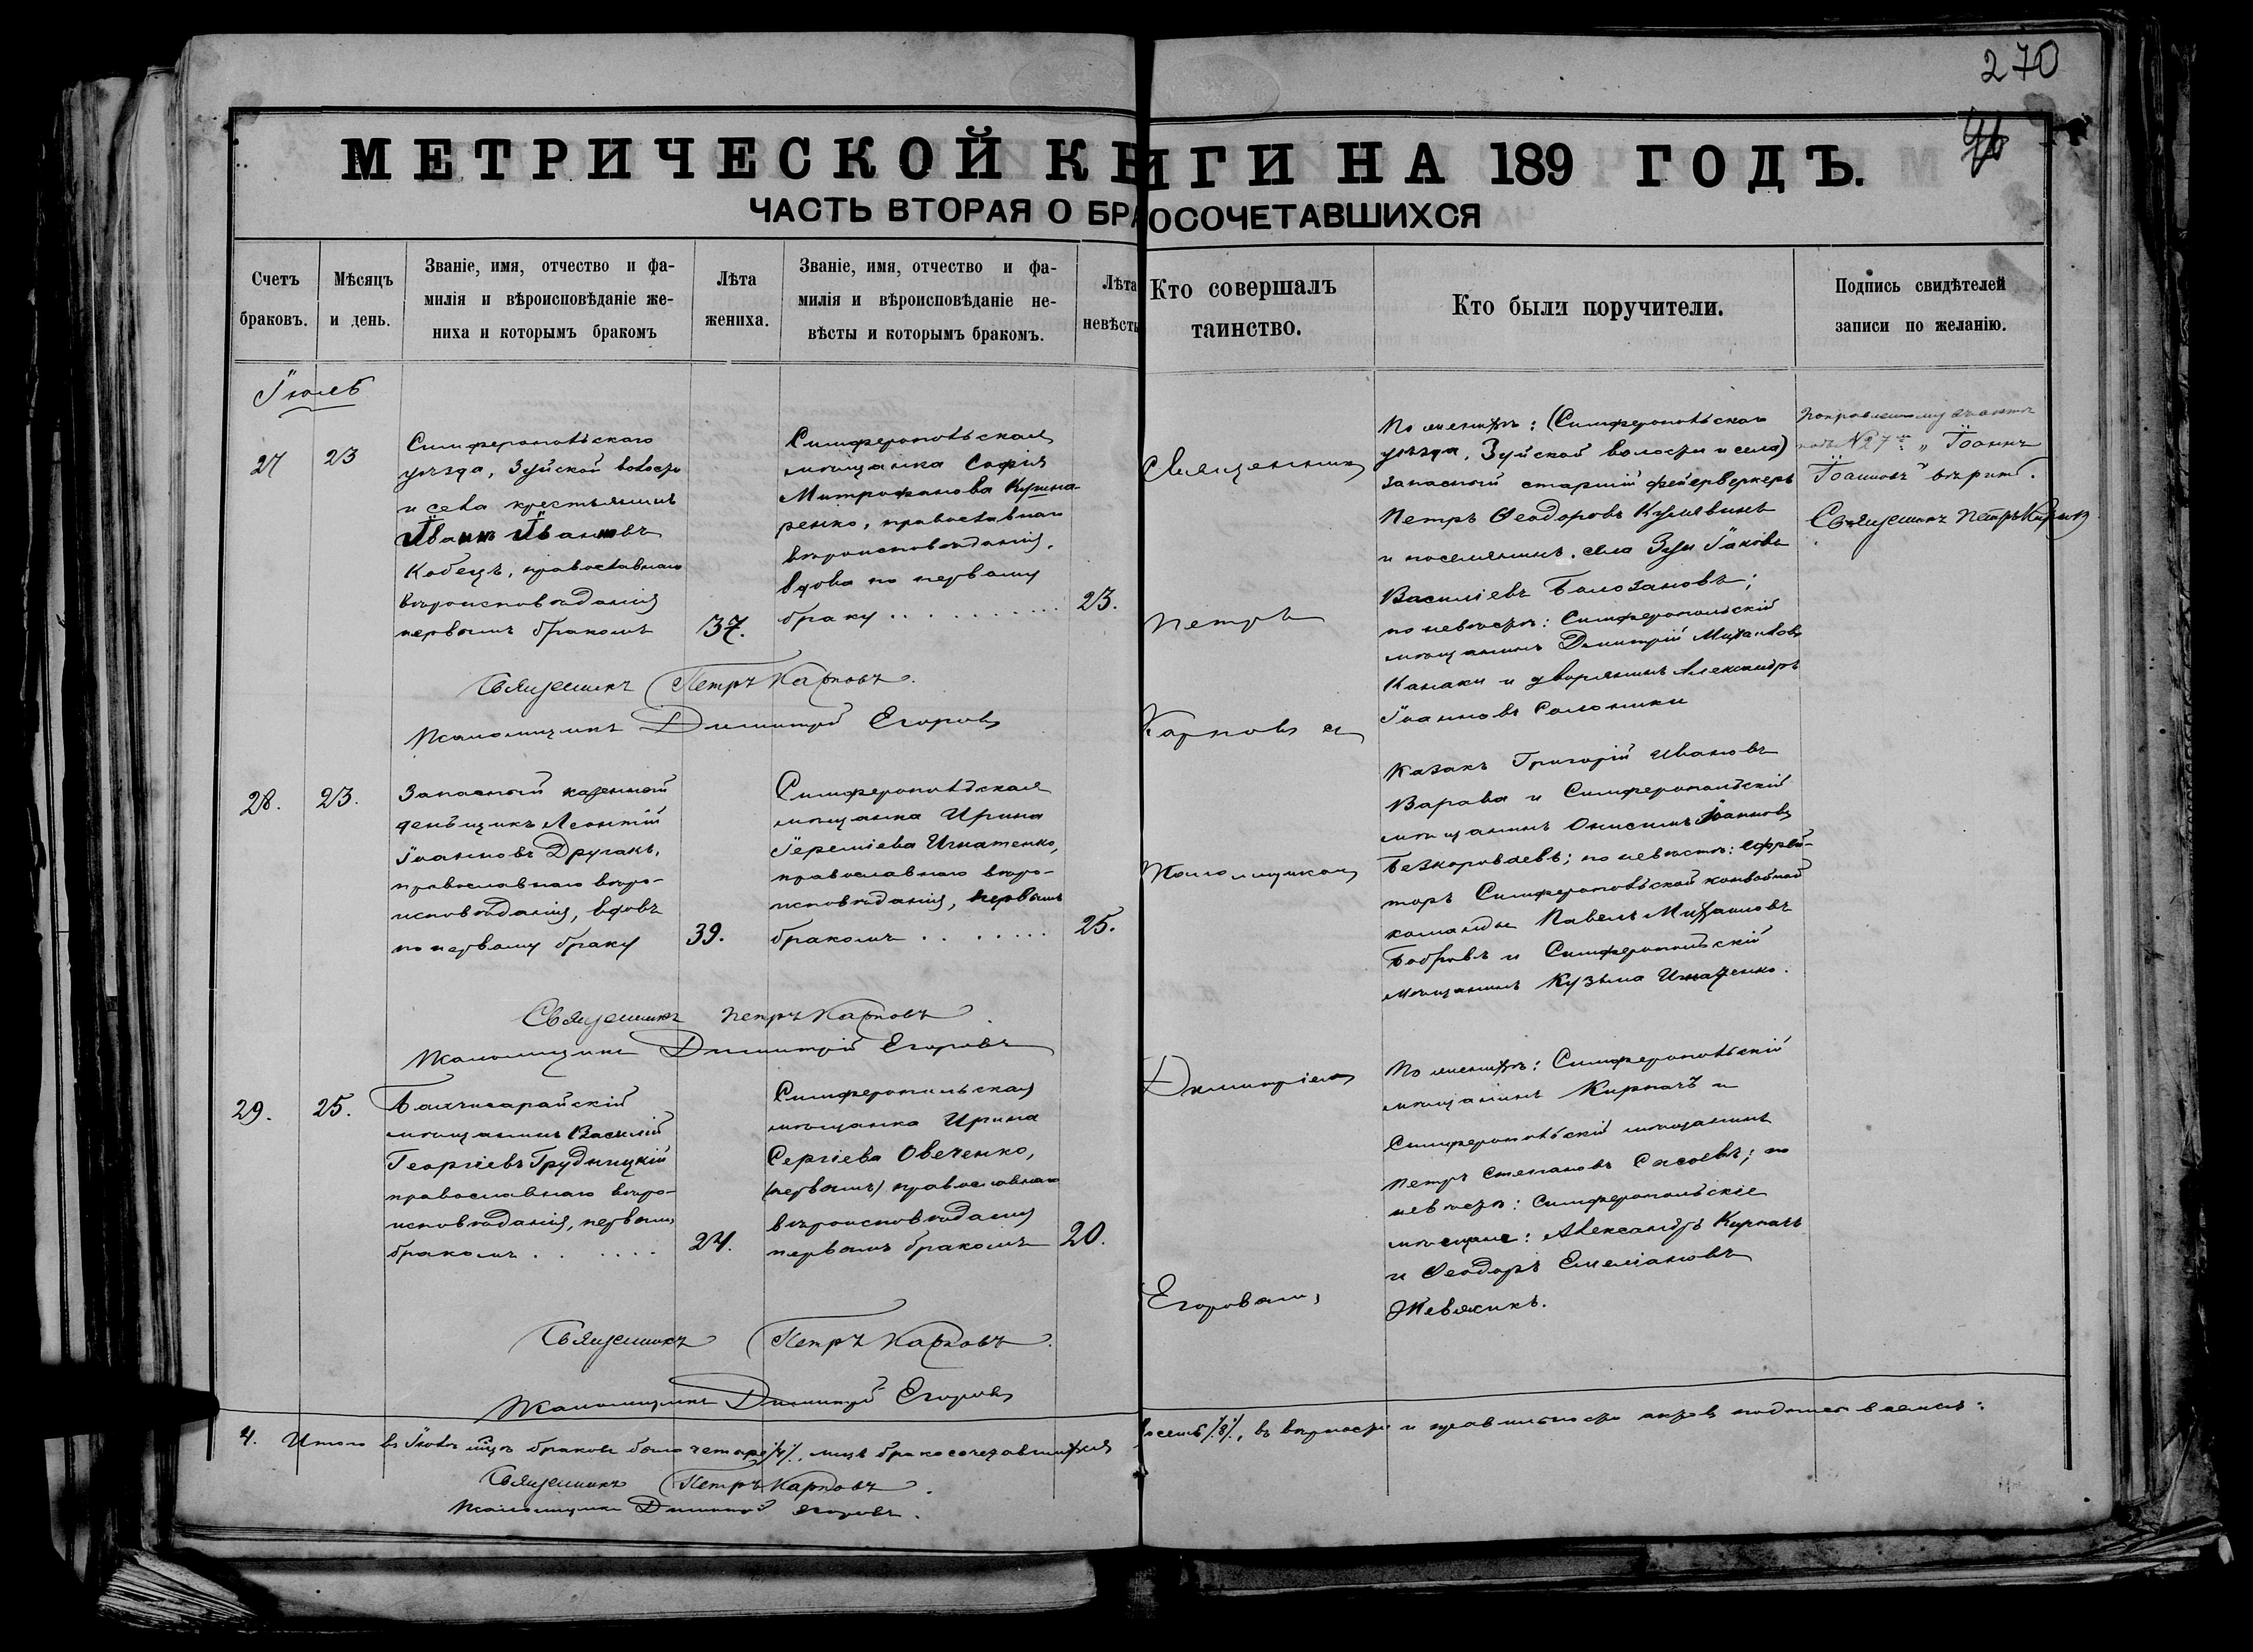 270
МЕТРИЧЕСКОЙ КНИГИ НА 189 ГОДЪ.
ЧАСТЬ ВТОРАЯ О БРАОСОЧЕТАВШИХСЯ
Счетъ
браковъ.
Мѣсяцъ
и день.
Званіе, имя, отчество и фа-
милія и вѣроисповѣданіе же-
ниха и которымъ бракомъ
Лѣта
жениха.
Званіе, имя, отчество и фа-
милія и вѣроисповѣданіе не-
вѣсты и которымъ бракомъ.
Лѣта
невѣсты
Кто совершалъ
таинство.
Кто были поручители.
Подпись свидѣтелей
записи по желанію.
Іюль
27
23
Симферопольскаго
уѣзда, Зуйской волости
и села крестьянинъ
Іоаннъ Іоанновъ
Кобецъ, православнаго
вѣроисповѣданія
первымъ бракомъ
37.
Симферопольская
мѣщанка Софія
Митрофанова Кушна-
ренко, православнаго
вѣроисповѣданія,
вдова по первому
браку
23.
Священникъ
Петръ
Карповъ съ
Псаломщикомъ
Димитріемъ
Егоровымъ
По женихѣ: (Симферопольскаго
уѣзда, Зуйской волости и села)
запасный старшій фейерверкеръ
Петръ Ѳеодоровъ Кулявинъ
и поселянинъ села Зуи Іаковъ
Василіевъ Балозановъ;
по невѣстѣ: Симферопольскій
мѣщанинъ Димитрій Михаиловъ
Канаки и дворянинъ Александръ
Іоанновъ Саломики
По правленному въ актѣ
подъ №27мъ „Іоаннъ
Іоанновъ" вѣрить.
Священникъ Петръ Карповъ
Священникъ Петръ Карповъ.
Псаломщикъ Димитрій Егоровъ
28.
23.
Запасный казенный
деньщикъ Леонтій
Іоанновъ Другакъ,
православнаго вѣро-
исповѣданія, вдовъ
по первому браку
39.
Симферопольская
мѣщанка Ирина
Іереміева Игнатенко,
православнаго вѣро-
исповѣданія, первымъ
бракомъ
25.
Казакъ Григорій Ивановъ
Варава и Симферопольскій
мѣщанинъ Онисимъ Іоанновъ
Безкороваевъ; по невѣстѣ: ефрей-
торъ Симферопольской конвойной
команды Павелъ Михаиловъ
Бобровъ и Симферопольскій
мѣщанинъ Кузьма Игнатенко.
Священникъ Петръ Карповъ
Псаломщикъ Димитрій Егоровъ
29.
25.
Бахчисарайскій
мѣщанинъ Василій
Георгіевъ Грудницкій
православнаго вѣро-
исповѣданія, первымъ
бракомъ
24.
Симферопольская
мѣщанка Ирина
Сергіева Овеченко,
(первымъ) православнаго
вѣроисповѣданія
первымъ бракомъ
20.
По женихѣ: Симферопольскій
мѣщанинъ Кирпачъ и
Симферопольскій мѣщанинъ
Петръ Степановъ Сысоевъ; по
невѣстѣ: Симферопольскіе
мѣщане: Александръ Кирпачъ
и Ѳеодоръ Емеліановъ
Жевжикъ.
Священникъ Петръ Карповъ.
Псаломщикъ Димитрій Егоровъ
4. Итого въ Іюлѣ мцѣ браковъ было четыре /4/, лицъ бракосочетавшихся восемь /8/, въ вѣрности и правильности актовъ подписываемся:
Священникъ Петръ Карповъ.
Псаломщикъ Димитрій Егоровъ.